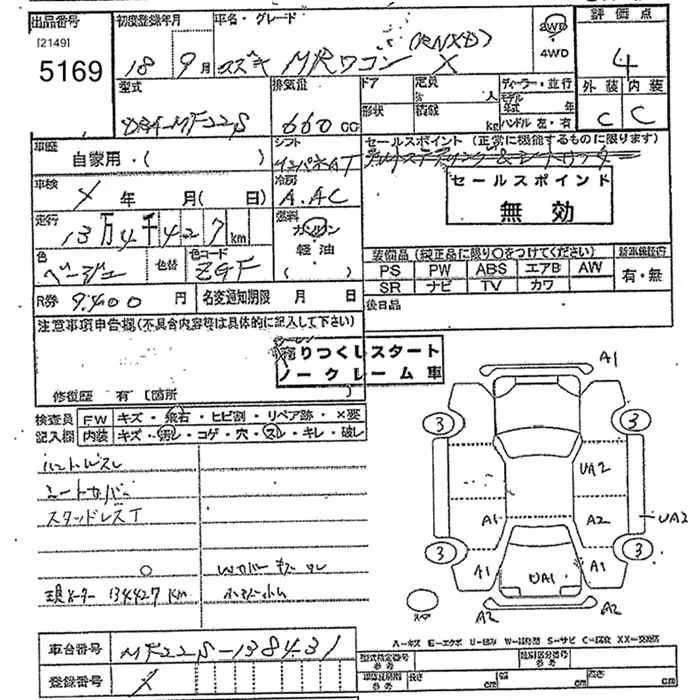 出品番号 初度登録年月 車名・グレード 2WD 評価点
[2149] 4WD
5169 18 9月 スズキ MRワゴン (RNXD) X 4
型式 排気量 ドア 定員 人 ディーラー・並行 外装 内装
モデル 年式 年
DBA-MF22S 660cc 形状 積載 kg ハンドル 左・右 C C
車歴 シフト セールスポイント (正常に機能するものに限ります)
自家用・( ) インパネAT
車検 冷房 セールスポイント
X 年 月( 日) A.AC 無効
走行 燃料
13万4千427km ガソリン 装備品 (純正品に限り○をつけてください) 新車保証書
色 色替 色コード 軽油 PS PW ABS エアB AW 有・無
ベージュ ZGF ( ) SR ナビ TV カワ
R券 9,400円 名変通知期限 月 日 後日品
注意事項申告欄(不具合内容等は具体的に記入して下さい)
売りつくしスタート
ノークレーム車
修復歴 有 〔箇所 〕
検査員 FW キズ・飛石・ヒビ割・リペア跡・×要
記入欄 内装 キズ・汚れ・コゲ・穴・スレ・キレ・破レ
シートカバー
スタッドレスT
現メーター 134427km
A1
3 3
UA2
A1 A2 UA2
3 3
A1 UA1 A1
A2 A2
A-キズ E-エクボ U-凹み W-補修跡 S-サビ C-腐食 XX-交換済
車台番号 MF22S-138431 型式指定番号 参考 類別区分番号 参考
登録番号 X 長さ cm 幅 cm 高さ cm